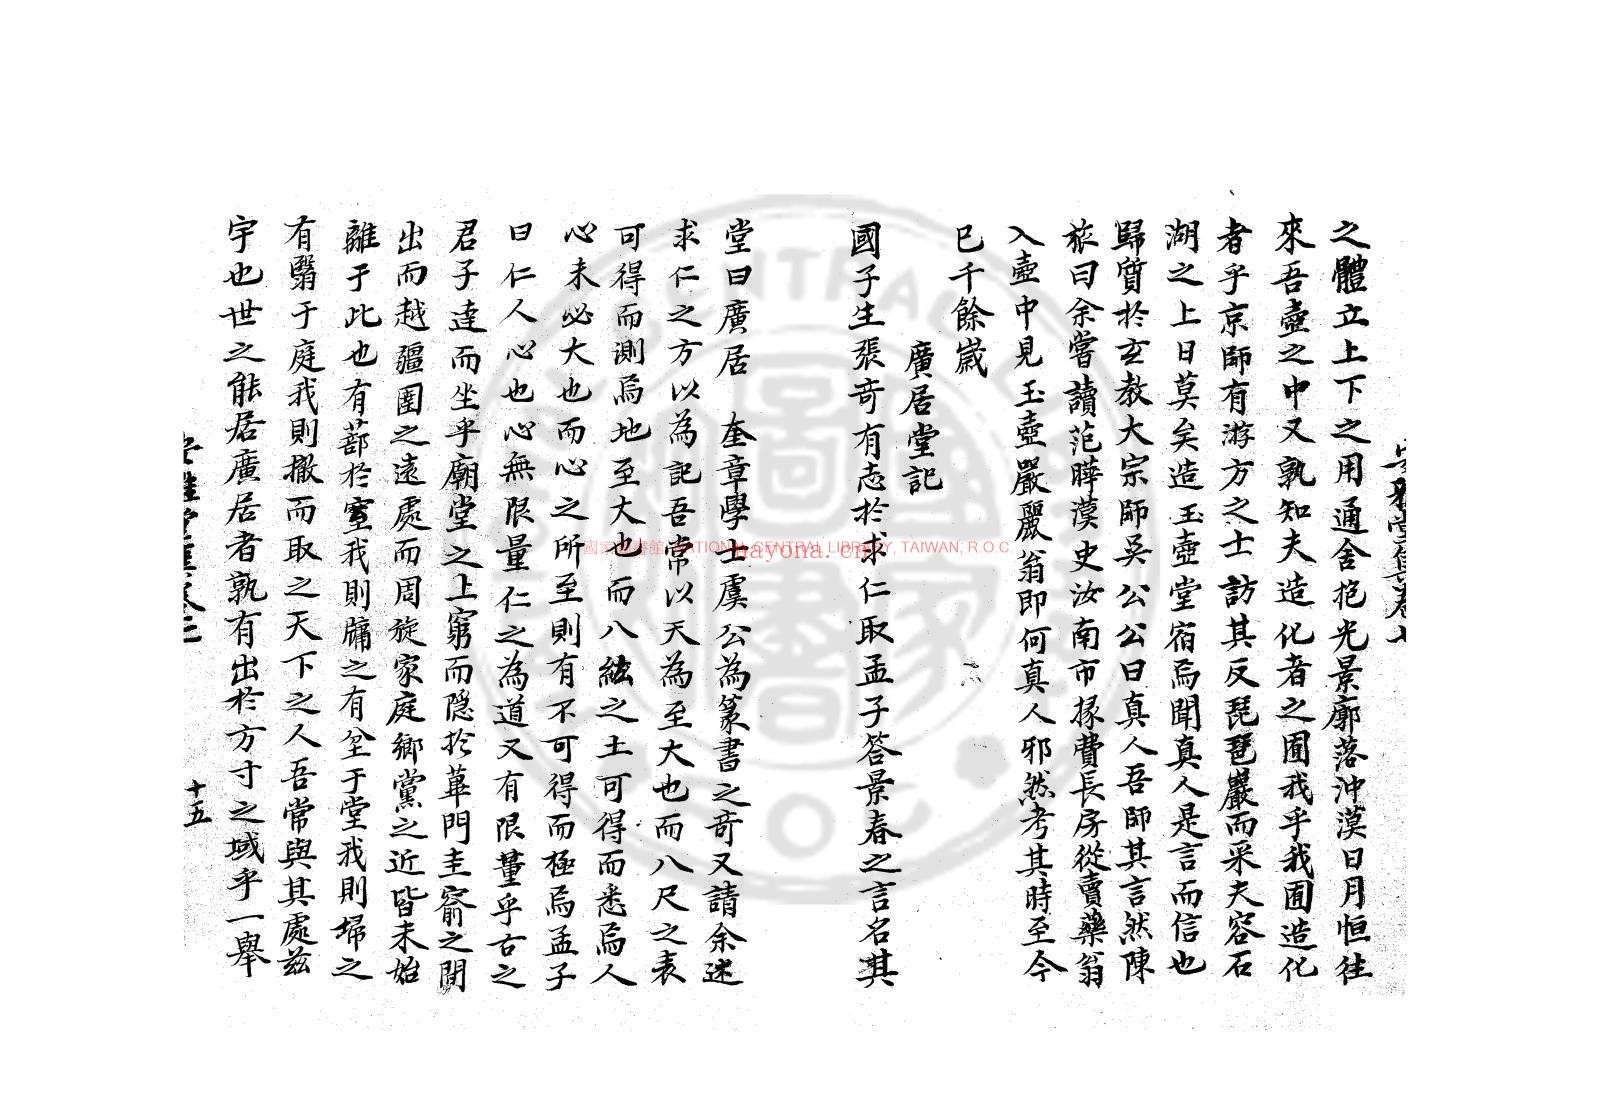 之體立上下之用通舍抱光景廓落沖漠日月恒往
來吾壺之中又孰知夫造化者之囿我乎我囿造化
者乎京師有游方之士訪其反琵琶巖而采夫容石
湖之上日莫矣造玉壺堂宿焉聞真人是言而信也
歸質於玄教大宗師吳公公曰真人吾師其言然陳
旅曰余嘗讀范曄漢史汝南市掾費長房從賣藥翁
入壺中見玉壺嚴麗翁即何真人邪然考其時至今
已千餘歲
廣居堂記
國子生張奇有志於求仁取孟子答景春之言名其
堂曰廣居 奎章學士虞公為篆書之奇又請余述
求仁之方以為記吾常以天為至大也而八尺之表
可得而測焉地至大也而八紘之土可得而悉焉人
心未必大也而心之所至則有不可得而極焉孟子
曰仁人心也心無限量仁之為道又有限量乎古之
君子達而坐乎廟堂之上窮而隱於蓽門圭窬之間
出而越疆圉之遠處而周旋家庭鄉黨之近皆未始
離于此也有蔀於室我則牖之有坌于堂我則埽之
有翳于庭我則撤而取之天下之人吾常與其處茲
宇也世之能居廣居者孰有出於方寸之域乎一舉
十五
國家圖書館 NATIONAL CENTRAL LIBRARY, TAIWAN, R.O.C.
nayona.cn